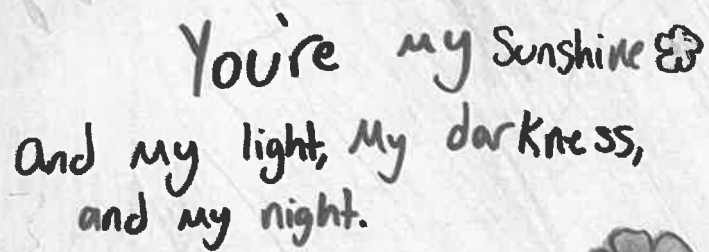 You're my Sunshine
and my light, My darkness,
and my night.